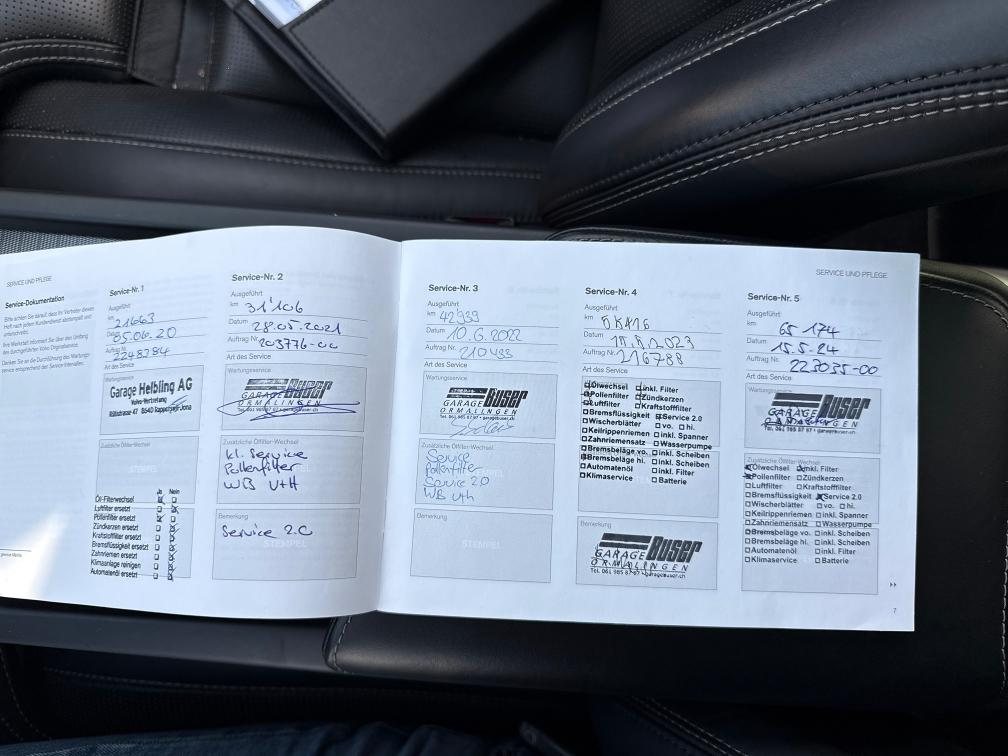 SERVICE UND PFLEGE
Service-Dokumentation
Bitte achten Sie darauf, dass Ihr Vertreter dieses
Heft nach jedem Kundendienst abstempelt und
unterschreibt.
Ihre Werkstatt informiert Sie über den Umfang
des durchgeführten Volvo Originalservice.
Denken Sie an die Durchführung des Wartungs-
service entsprechend der Service-Intervallen.
Service-Nr. 1
Ausgeführt
km 21663
Datum 05.06.20
Auftrag Nr. 2248384
Art des Service
Wartungsservice
Garage Helbling AG
Volvo-Vertretung
8640 Rapperswil-Jona
Zusätzliche Ölfilter-Wechsel
STEMPEL
Ja Nein
Öl-Filterwechsel
Luftfilter ersetzt
Pollenfilter ersetzt
Zündkerzen ersetzt
Kraftstofffilter ersetzt
Bremsflüssigkeit ersetzt
Zahnriemen ersetzt
Klimaanlage reinigen
Automatenöl ersetzt
Service-Nr. 2
Ausgeführt
km 31'106
Datum 28.05.2021
Auftrag Nr. 203776-00
Art des Service
Wartungsservice
GARAGE BUSER
ORMALINGEN
Tel. 061 985 87 87 • garagebuser.ch
Zusätzliche Ölfilter-Wechsel
kl. Service
Pollenfilter
WB V+H
Bemerkung
Service 2.0
STEMPEL
Service-Nr. 3
Ausgeführt
km 42939
Datum 10.6.2022
Auftrag Nr. 210433
Art des Service
Wartungsservice
GARAGE BUSER
ORMALINGEN
Tel. 061 985 87 87 • garagebuser.ch
Zusätzliche Ölfilter-Wechsel
Service
Pollenfilter
Service 2.0
WB v+h
Bemerkung
STEMPEL
Service-Nr. 4
Ausgeführt
km
Datum
Auftrag Nr. 216788
Art des Service
Ölwechsel inkl. Filter
Pollenfilter Zündkerzen
Luftfilter Kraftstofffilter
Bremsflüssigkeit Service 2.0
Wischerblätter vo. hi.
Keilrippenriemen inkl. Spanner
Zahnriemensatz Wasserpumpe
Bremsbeläge vo. inkl. Scheiben
Bremsbeläge hi. inkl. Scheiben
Automatenöl inkl. Filter
Klimaservice Batterie
Bemerkung
GARAGE BUSER
ORMALINGEN
Tel. 061 985 87 87 • garagebuser.ch
SERVICE UND PFLEGE
Service-Nr. 5
Ausgeführt
km 65 174
Datum 15.5.24
Auftrag Nr. 223035-00
Art des Service
Wartungsservice
GARAGE BUSER
ORMALINGEN
Tel. 061 985 87 87 • garagebuser.ch
Zusätzliche Ölfilter-Wechsel
Ölwechsel inkl. Filter
Pollenfilter Zündkerzen
Luftfilter Kraftstofffilter
Bremsflüssigkeit Service 2.0
Wischerblätter vo. hi.
Keilrippenriemen inkl. Spanner
Zahnriemensatz Wasserpumpe
Bremsbeläge vo. inkl. Scheiben
Bremsbeläge hi. inkl. Scheiben
Automatenöl inkl. Filter
Klimaservice Batterie
7